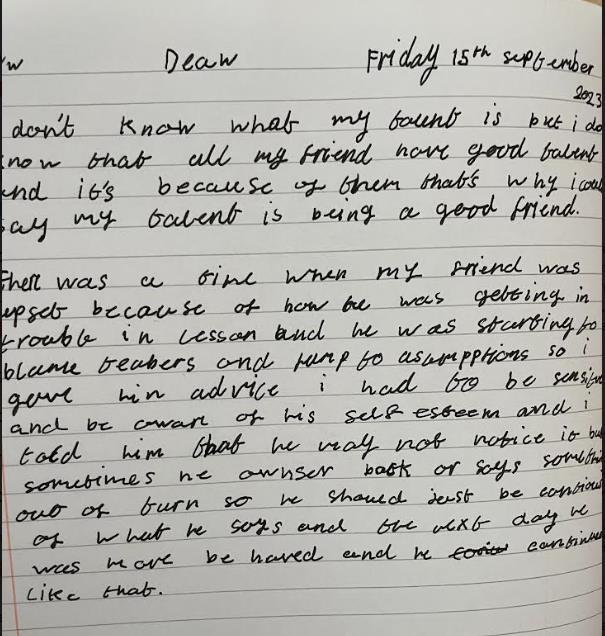 w Deaw Friday 15th september
2023
don't know what my talent is but i do
now that all my friend have good talent
and it's because of them that's why i coul
say my talent is being a good friend.
There was a time when my friend was
upset because of how he was getting in
trouble in lesson and he was starting to
blame teabers and jump to asumpptions so i
gave him advice i had to be sensitiv
and be awart of his self esteem and i
told him that he may not notice it but
sometimes he awnser back or says somethi
out of turn so he should just be cautious
of what he says and the next day he
was more be haved and he continue
like that.